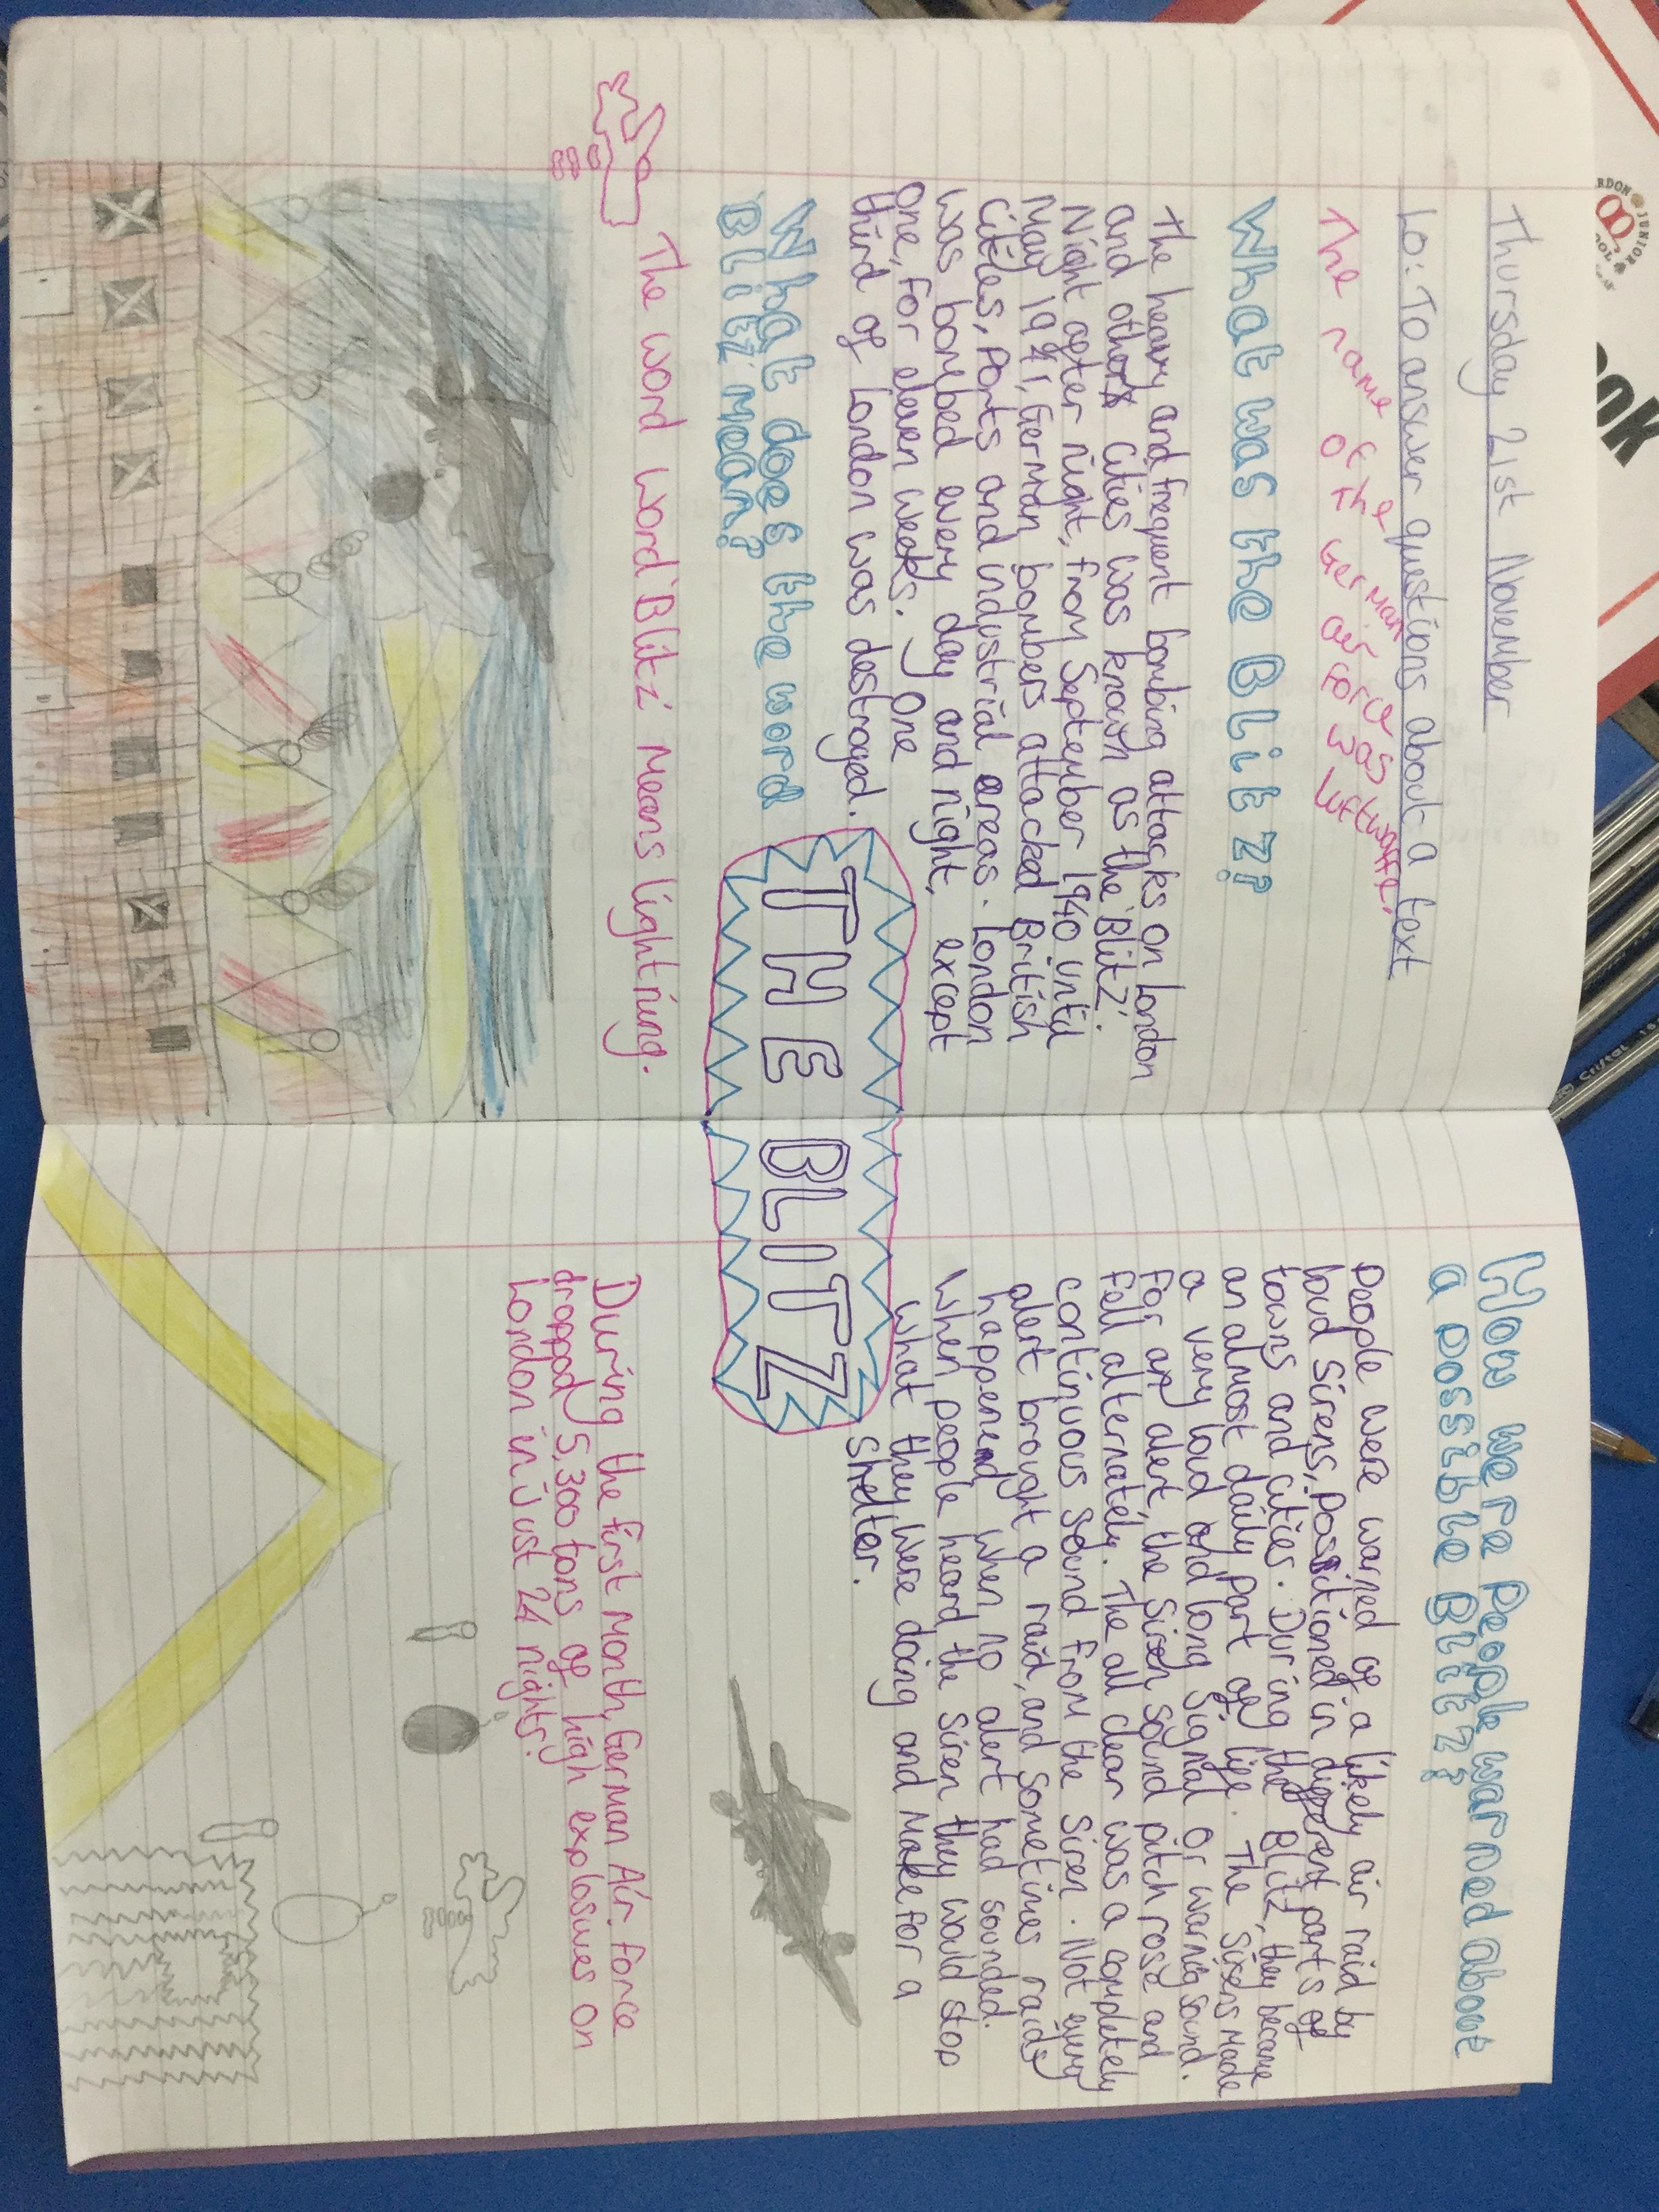 Thursday 21st November
Lo: To answer questions about a text
The name of the German air force was luftwaffe.
What was the Blitz?
The heavy and frequent bombing attacks on London
and other cities was known as the 'Blitz'.
Night after night, from September 1940 until
May 1941, German bombers attacked British
cities, ports and industrial areas. London
was bombed every day and night, except
one, for eleven weeks. One
third of London was destroyed.
What does the word
Blitz mean?
The word word 'Blitz' means lightning.
THE BLITZ
How were people warned about
a possible Blitz?
People were warned of a likely air raid by
loud sirens, positioned in different parts of
towns and cities. During the Blitz, they became
an almost daily part of life. The sirens made
a very loud and long signal or warnig sound.
For an alert, the siren sound pitch rose and
fell alternately. The all clear was a completely
continuous sound from the siren. Not every
alert brought a raid, and sometimes raids
happenend when no alert had sounded.
When people heard the siren they would stop
what they were doing and make for a
shelter.
During the first month, German Air Force
dropped 5,300 tons of high explosives on
London in just 24 nights.
RDON JUNIOR
OOK
Crystal